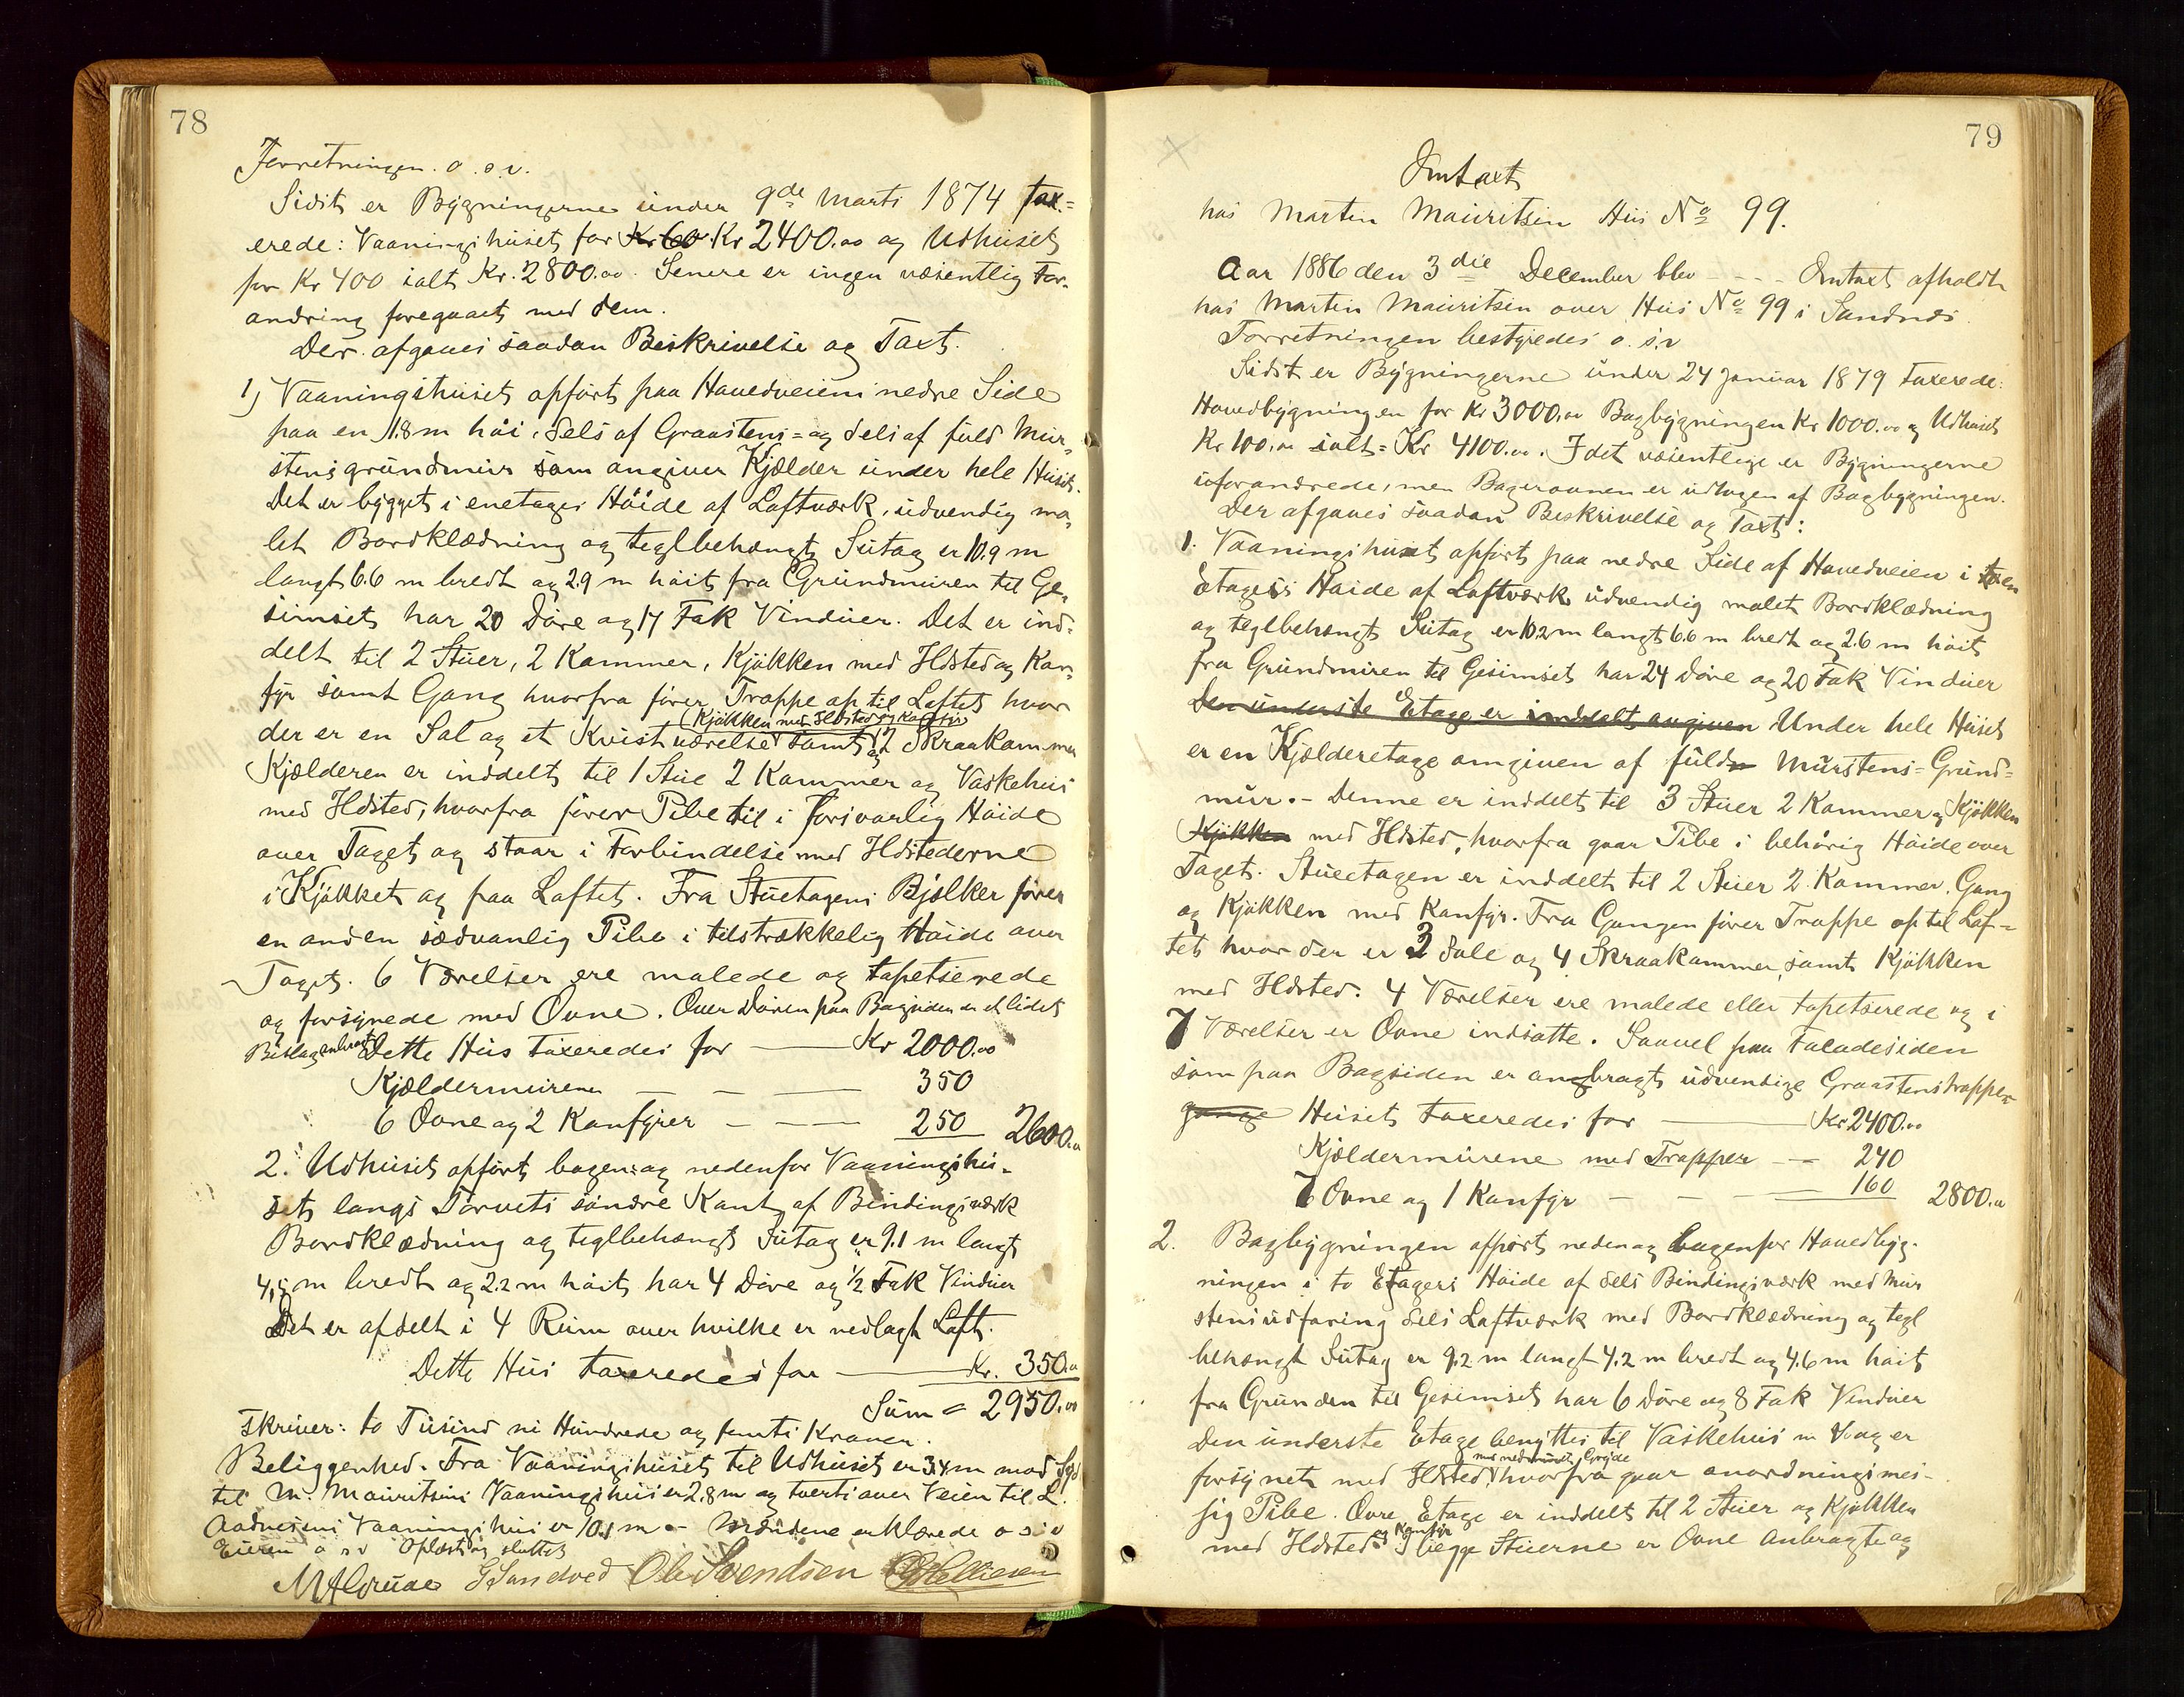 78
Forretningen o.s.v.
Sidst er Bygningerne under 9de Marts 1874 tax-
erede: Vaaningshuset for Kr 60 Kr 2400.00 og Udhuset
for Kr 400 ialt Kr. 2800.00. Senere er ingen væsentlig For-
andring foregaaet med dem.
Der afgaves saadan Beskrivelse og Taxt.
1) Vaaningshuset opført paa Hovedveiens nedre Side
paa en 1.8 m höi, dels af Graastens- og dels af fuld Mur-
stensgrundmur som angiver Kjælder under hele Huset.
Det er bygget i enetages Höide af Laftværk, udvendig ma-
let Bordklædning og teglbehængt Sutag er 10.9 m
langt 6.6 m bredt og 2.9 m höit fra Grundmuren til Ge-
simset har 20 Döre og 17 Fak Vinduer. Det er ind-
delt til 2 Stuer, 2 Kammer, Kjökken med Ildsted og Kom-
fyr samt Gang hvorfra förer Trappe op til Loftet hvor
(Kjökken med Ildsted og Komfyr
der er en Sal og et Kvistværelse samt og 2 Skraakammer
Kjælderen er inddelt til 1 Stue 2 Kammer og Vaskehus
med Ildsted, hvorfra förer Pibe til i forsvarlig Höide
over Taget og staar i Forbindelse med Ildstederne
i Kjökket og paa Loftet. Fra Stuetagens Bjelker förer
en anden sædvanlig Pibe i tilstrækkelig Höide over
Taget. 6 Værelser ere malede og tapetserede
og forsynede med Ovne. Over Dören paa Bagsiden er et lidet
Bislag anbragt Dette Hus taxeredes for — Kr 2000.00
Kjældermurene — — — 350
6 Ovne og 2 Komfyrer — — — 250 2600.00
2. Udhuset opført bagen- og nedenfor Vaaningshu-
set langs Torvets söndre Kant af Bindingsværk
Bordklædning og teglbehængt Sutag er 9.1 m langt
4,5 m bredt og 2.2 m höit har 4 Döre og 1/2 Fak Vinduer
Det er afdelt i 4 Rum over hvilke er nedlagt Loft.
Dette Hus taxeredes for — Kr. 350.00
Sum = 2950.00
skriver: to Tusind ni Hundrede og femti Kroner.
Beliggenhed. Fra Vaaningshuset til Udhuset er 3.4 m mod Syd
til M. Mauritsens Vaaningshus er 2.8 m og tverts over Veien til L.
Aadnesens Vaaningshus er 10.1 m - Mændene erklærede o s v
Eieren o s v Oplæst og sluttet
G Sandved Ole Svendsen
79
Omtaxt
hos Marten Mauritsen Hus No 99.
Aar 1886 den 3die December blev - - - Omtaxt afholdt
hos Martin Mauritsen over Hus No 99 i Sandnæs.
Forretningen bestyredes o. s. v
Sidst er Bygningerne under 24 Januar 1879 taxerede:
Hovedbygningen for Kr 3000.00 Bagbygningen Kr 1000.00 og Udhuset
Kr 100.00 ialt = Kr 4100.00. I det væsentlige er Bygningerne
uforandrede, men Bagerovnen er udtagen af Bagbygningen.
Der afgaves saadan Beskrivelse og Taxt:
1. Vaaningshuset opført paa nedre Side af Hovedveien i en
Etages Höide af Laftværk udvendig malet Bordklædning
og teglbehængt Sutag er 10.2 m langt 6.6 m bredt og 2.6 m höit
fra Grundmuren til Gesimset har 24 Döre og 20 Fak Vinduer
Den underste Etage er inddelt angiven Under hele Huset
er en Kjælderetage omgiven af fuld Murstens-Grund-
mur. - Denne er inddelt til 3 Stuer 2 Kammer og Kjökken
Kjökken med Ildsted, hvorfra gaar Pibe i behörig Höide over
Taget. Stuetagen er inddelt til 2 Stuer 2 Kammer, Gang
og Kjökken med Komfyr. Fra Gangen förer Trappe op til Lof-
tet hvor der er 3 Sale og 4 Skraakammer, samt Kjökken
med Ildsted. 4 Værelser ere malede eller tapetserede og i
7 Værelser er Ovne indsatte. Saavel paa Facadesiden
som paa Bagsiden er anbragt udvendige Graastenstrapper
gange Huset taxeredes for — Kr 2400.00
Kjældermurene med Trapper — — 240
7 Ovne og 1 Komfyr — — — 160 2800.00
2. Bagbygningen opført neden og bagenfor Hovedbyg-
ningen i to Etagers Höide af dels Bindingsværk med Mur
stensudforing dels Laftværk med Bordklædning og tegl
behængt Sutag er 9.2 m langt 4.2 m bredt og 4.6 m höit
fra Grunden til Gesimset har 6 Döre og 8 Fak Vinduer
Den underste Etage benyttes til Vaskehus m V og er
med nedmuret Gryde
forsynet med Ildsted hvorfra gaar anordningsmes-
sig Pibe. Övre Etage er inddelt til 2 Stuer og Kjökken
og Komfyr
med Ildsted. I begge Stuerne er Ovne anbragte og